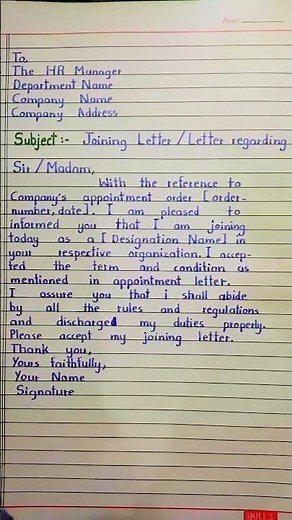 Date:
To,
The HR Manager
Department Name
Company Name
Company Address
Subject:- Joining Letter / Letter regarding
Sir / Madam,
With the reference to
Company's appointment order [order-
number, date]. I am pleased to
informed you that I am joining
today as a [Designation Name] in
your respective organization. I accep-
ted the term and condition as
mentioned in appointment letter.
I assure you that i shall abide
by all the rules and regulations
and discharged my duties properly.
Please accept my joining letter.
Thank you,
Yours faithfully,
Your Name
Signature
SKILLS